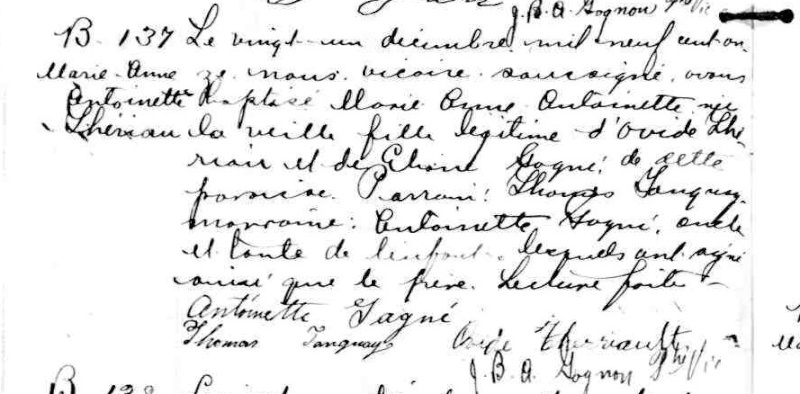 J. B. A. Gagnon Ptre Vic
B. 137 Le vingt-un décembre mil neuf cent on
Marie-Anne ze, nous, vicaire soussigné, avons
Antoinette baptisé Marie Anne Antoinette née
Thériau la veille fille légitime d'Ovide Thé-
riau et de Gagné, de cette
paroisse. Parrain: Thomas Tanguay,
marraine: Antoinette Gagné, oncle
et tante de l'enfant, lesquels ont signé
ainsi que le père. Lecture faite
Antoinette Gagné
Thomas Tanguay Ovide Therriault
J. B. A. Gagnon Ptre Vic
B.